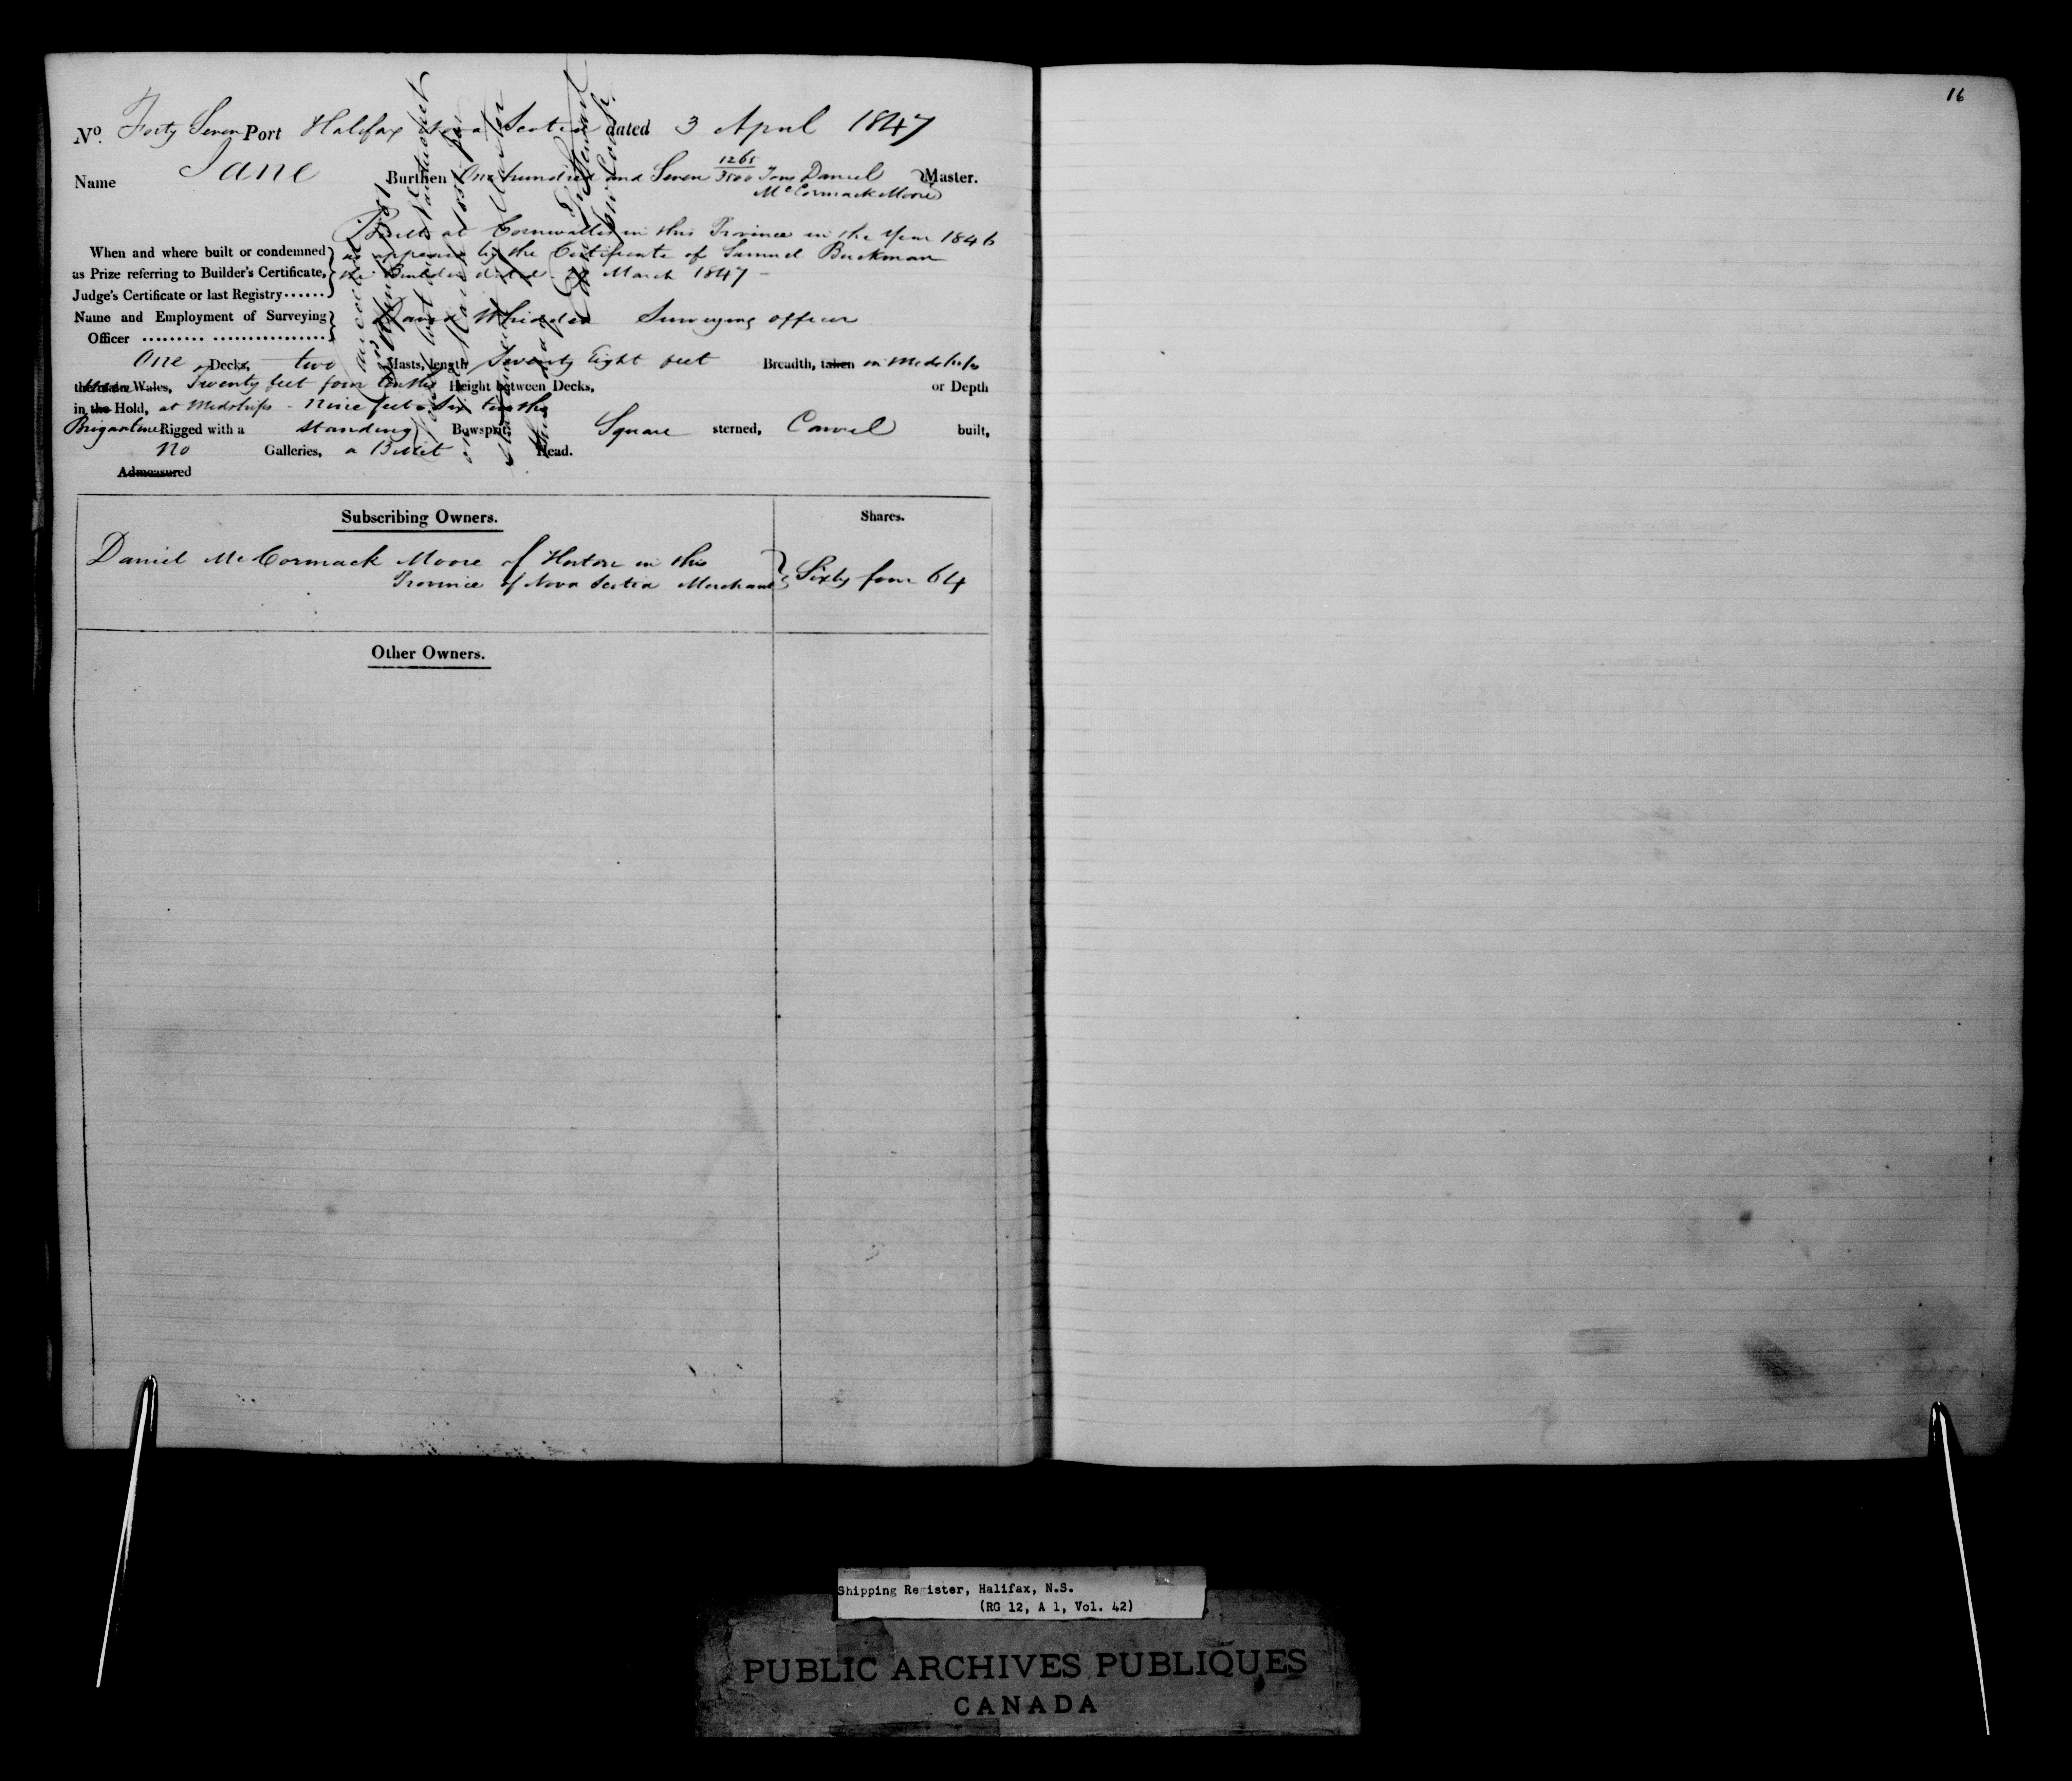 16
No. Forty Seven Port Halifax Nova Scotia dated 3 April 1847
Name Jane Burthen One hundred and Seven 1265/3500 Tons Daniel McCormack Moore Master.
Built at Cornwallis in this Province in the Year 1846
When and where built or condemned as appears by the Certificate of Samuel
as Prize referring to Builder's Certificate, the Builder dated March 1847 -
Judge's Certificate or last Registry......
Name and Employment of Surveying David Whidden Surveying officer
Officer
One Decks, two Masts, length Seventy Eight feet Breadth, taken in Midships
the main Wales, Twenty feet four tenths Height between Decks, or Depth
in the Hold, at Midships - Nine feet Six tenths
Brigantine Rigged with a standing Bowsprit, Square sterned, Carvel built,
no Galleries, a Billet Head.
Admeasured
Subscribing Owners. Shares.
Daniel McCormack Moore of Horton in this
Province of Nova Scotia Merchant Sixty four 64
Other Owners.
Shipping Register, Halifax, N.S.
(RG 12, A 1, Vol. 42)
PUBLIC ARCHIVES PUBLIQUES
CANADA